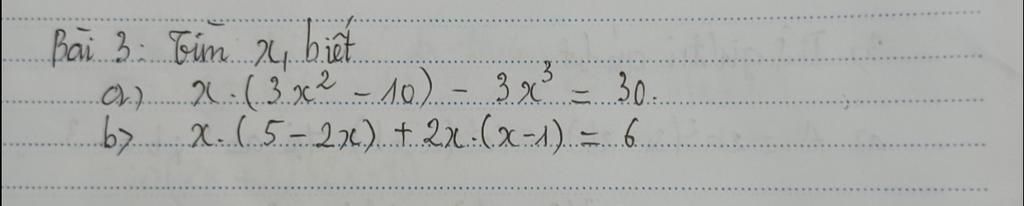 Bài 3: Tìm x, biết
a) x.(3x² - 10) - 3x³ = 30.
b) x.(5 - 2x) + 2x.(x - 1) = 6